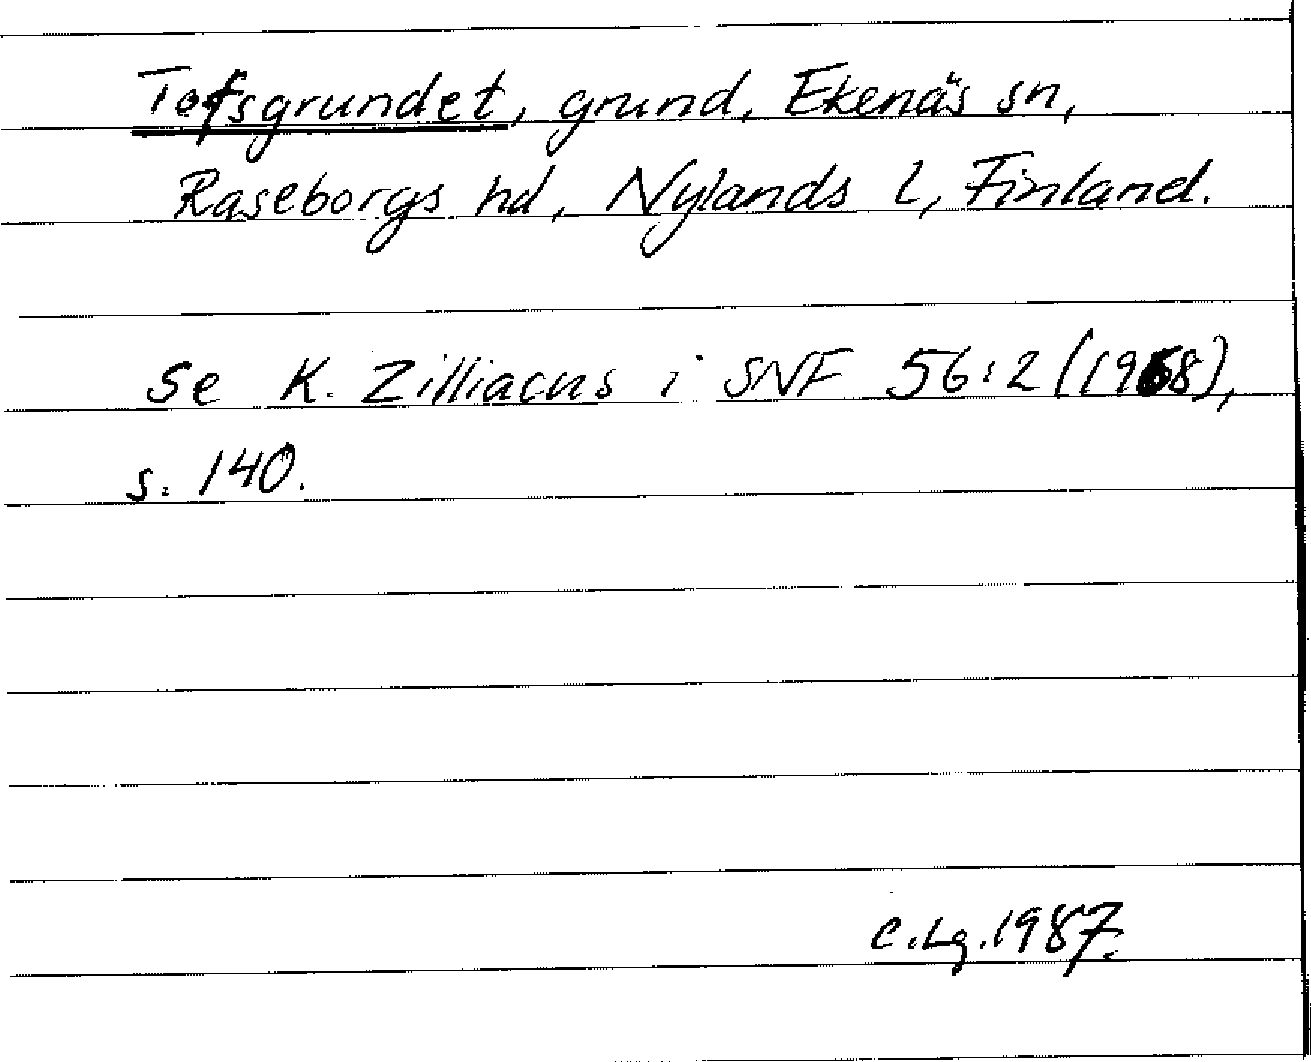 Tofsgrundet, grund, Ekenäs sn,
Raseborgs hd, Nylands l, Finland.
Se K. Zilliacus i SNF 56:2 (1968),
s. 140.
C.Lg.1987.